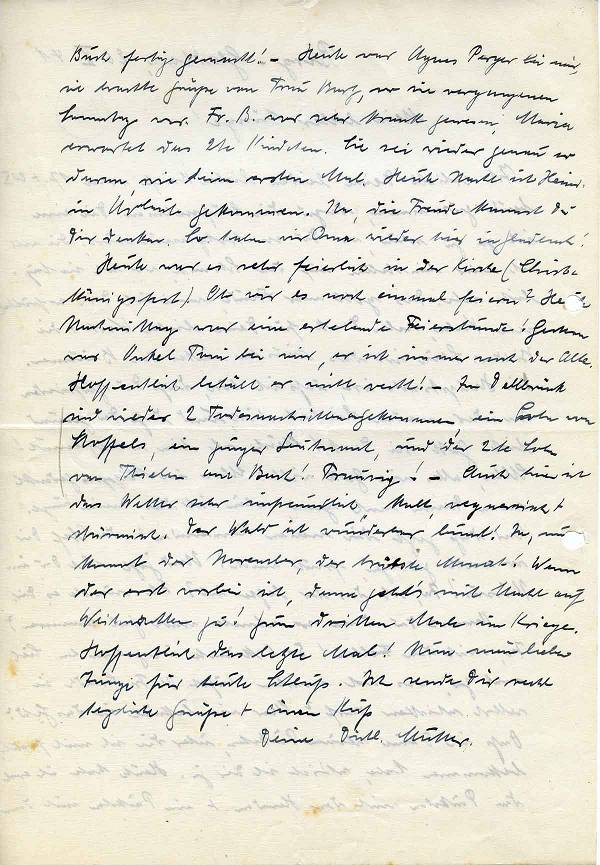 Buch fertig gemacht! – Heute war Agnes Perger bei mir,
sie brachte Grüße von Frau Burg, wo sie vergangenen
Sonntag war. Fr. B. war sehr krank gewesen, Maria
erwartet das 2te Kindchen. Sie sei wieder genau so
daran, wie beim ersten Mal. Heute Nacht ist Heinr.
in Urlaub gekommen. Na, die Freude kannst Du
Dir denken. So haben wir Oma wieder hier in
Heute war es sehr feierlich in der Kirche (Christ
Königsfest) Ob wir es noch einmal feiern? Heute
Nachmittag war eine erhebende Feierstunde! Gestern
war Onkel Toni bei mir, er ist immer noch der Alte.
Hoffentlich behält er nicht recht! – In Dellbrück
sind wieder 2 Todesnachrichten angekommen, ein Sohn von
Stoffels, ein junger Leutnant, und der 2te Sohn
von Thielen am Buch! Traurig! – Auch hier ist
das Wetter sehr unfreundlich, kalt, regnerisch +
stürmisch. Der Wald ist wunderbar bunt! Na, nun
kommt der November, der trübste Monat! Wenn
der erst vorbei ist, dann geht's mit Macht auf
Weihnachten zu! Zum dritten Male im Kriege.
Hoffentlich das letzte Mal! Nun mein lieber
Junge für heute Schluß. Ich sende Dir recht
herzliche Grüße + einen Kuß
Deine Dichl. Mutter.